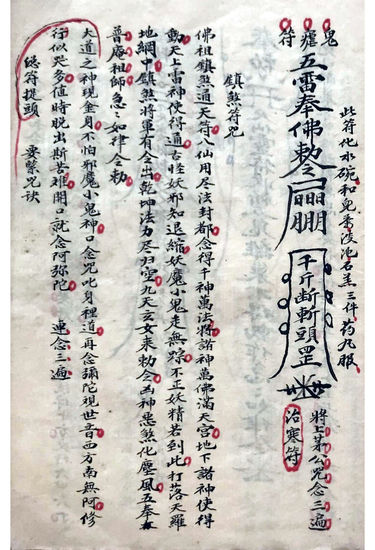 鬼瘧符
此符化水碗和泡石羔三件丸服
五雷奉佛敕令
千斤斷斬頭罡
將上茅公咒念三遍
治寒符
鎮煞符咒
佛祖鎮煞通天符八仙用尽法封都念得千神萬法將諸神萬佛滿天宮地下諸神使得
動天上雷神使得通古怪妖邪知退縮妖魔小鬼走無踪不正妖精若到此打落天羅
地網中鎮煞將軍有令出乾坤法力尽归空九天玄女來勅令凶神惡煞化塵風五奉
普庵祖師急々如律令勅
大道之神現金身不怕邪魔小鬼神口念咒此身裡道再念彌陀視世音西方南無阿修
行似哭多值時脱出斯苦难開口就念阿弥陀 連念三遍
總符提頭 要緊咒訣